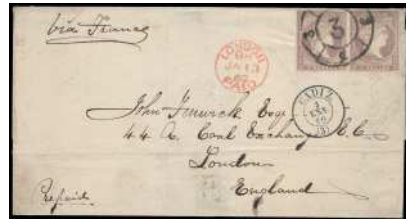 via France
LONDON
JA 13
PAID
3
CADIZ
ENE
John Fenwick Esqe
44 A, Coal Exchange E.C.
London
England
Prepaid